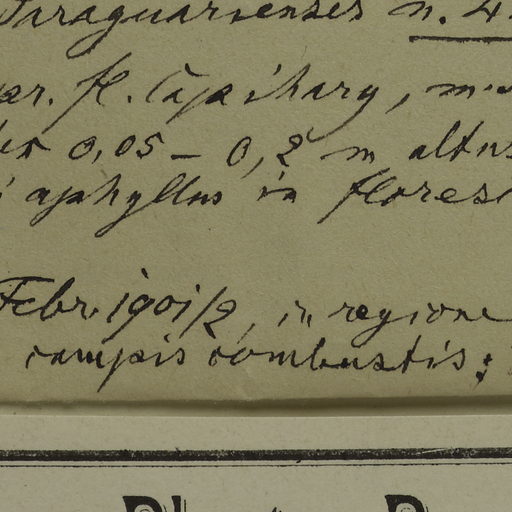 Paraguarienses n. 4
pr. fl. Capihary, m
0,05 – 0,2 m altus
aphyllus in flores
Febr. 1901/2, in regione
campis combustis;